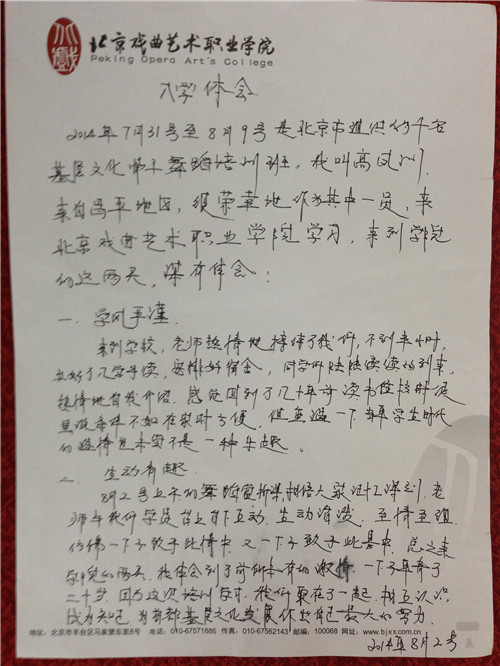 北京戏曲艺术职业学院
Peking Opera Art's College
入学体会
2014年7月31号至8月9号是北京市
基层文化骨干舞蹈培训班,我叫高
来自昌平地区,很荣幸地作为其中一员,来
北京戏曲艺术职业学院学习,来到学院
的这两天,深有体会:
一、学风严谨
来到学校,老师热情地接待了我们,不到半小时,
办好了入学手续,安排好宿舍,同学们陆陆续续的到来,
热情地自我介绍。感觉回到了几十年前读书
条件不如在家时方便,但重温一下当年学生时代
的激情也未尝不是一种乐趣。
二、生动有趣
8月2号上午的舞蹈赏析课,相信大家记忆深刻。老
师与我们学员台上台下互动,生动活泼
仿佛一下子致于此情中,又一下子致于此景中。总之来
学院的两天,我体会到了前所未有的激情,一下子年青了
二十岁,因为这次培训,我们聚在一起,相互认识
成为知己,为首都基层文化发展做出自己最大的努力。
2014年8月2号
地址:北京市丰台区马家堡东里8号 电话:010-67571686 传真:010-67562143 邮编:100068 网址:www.bjxx.com.cn